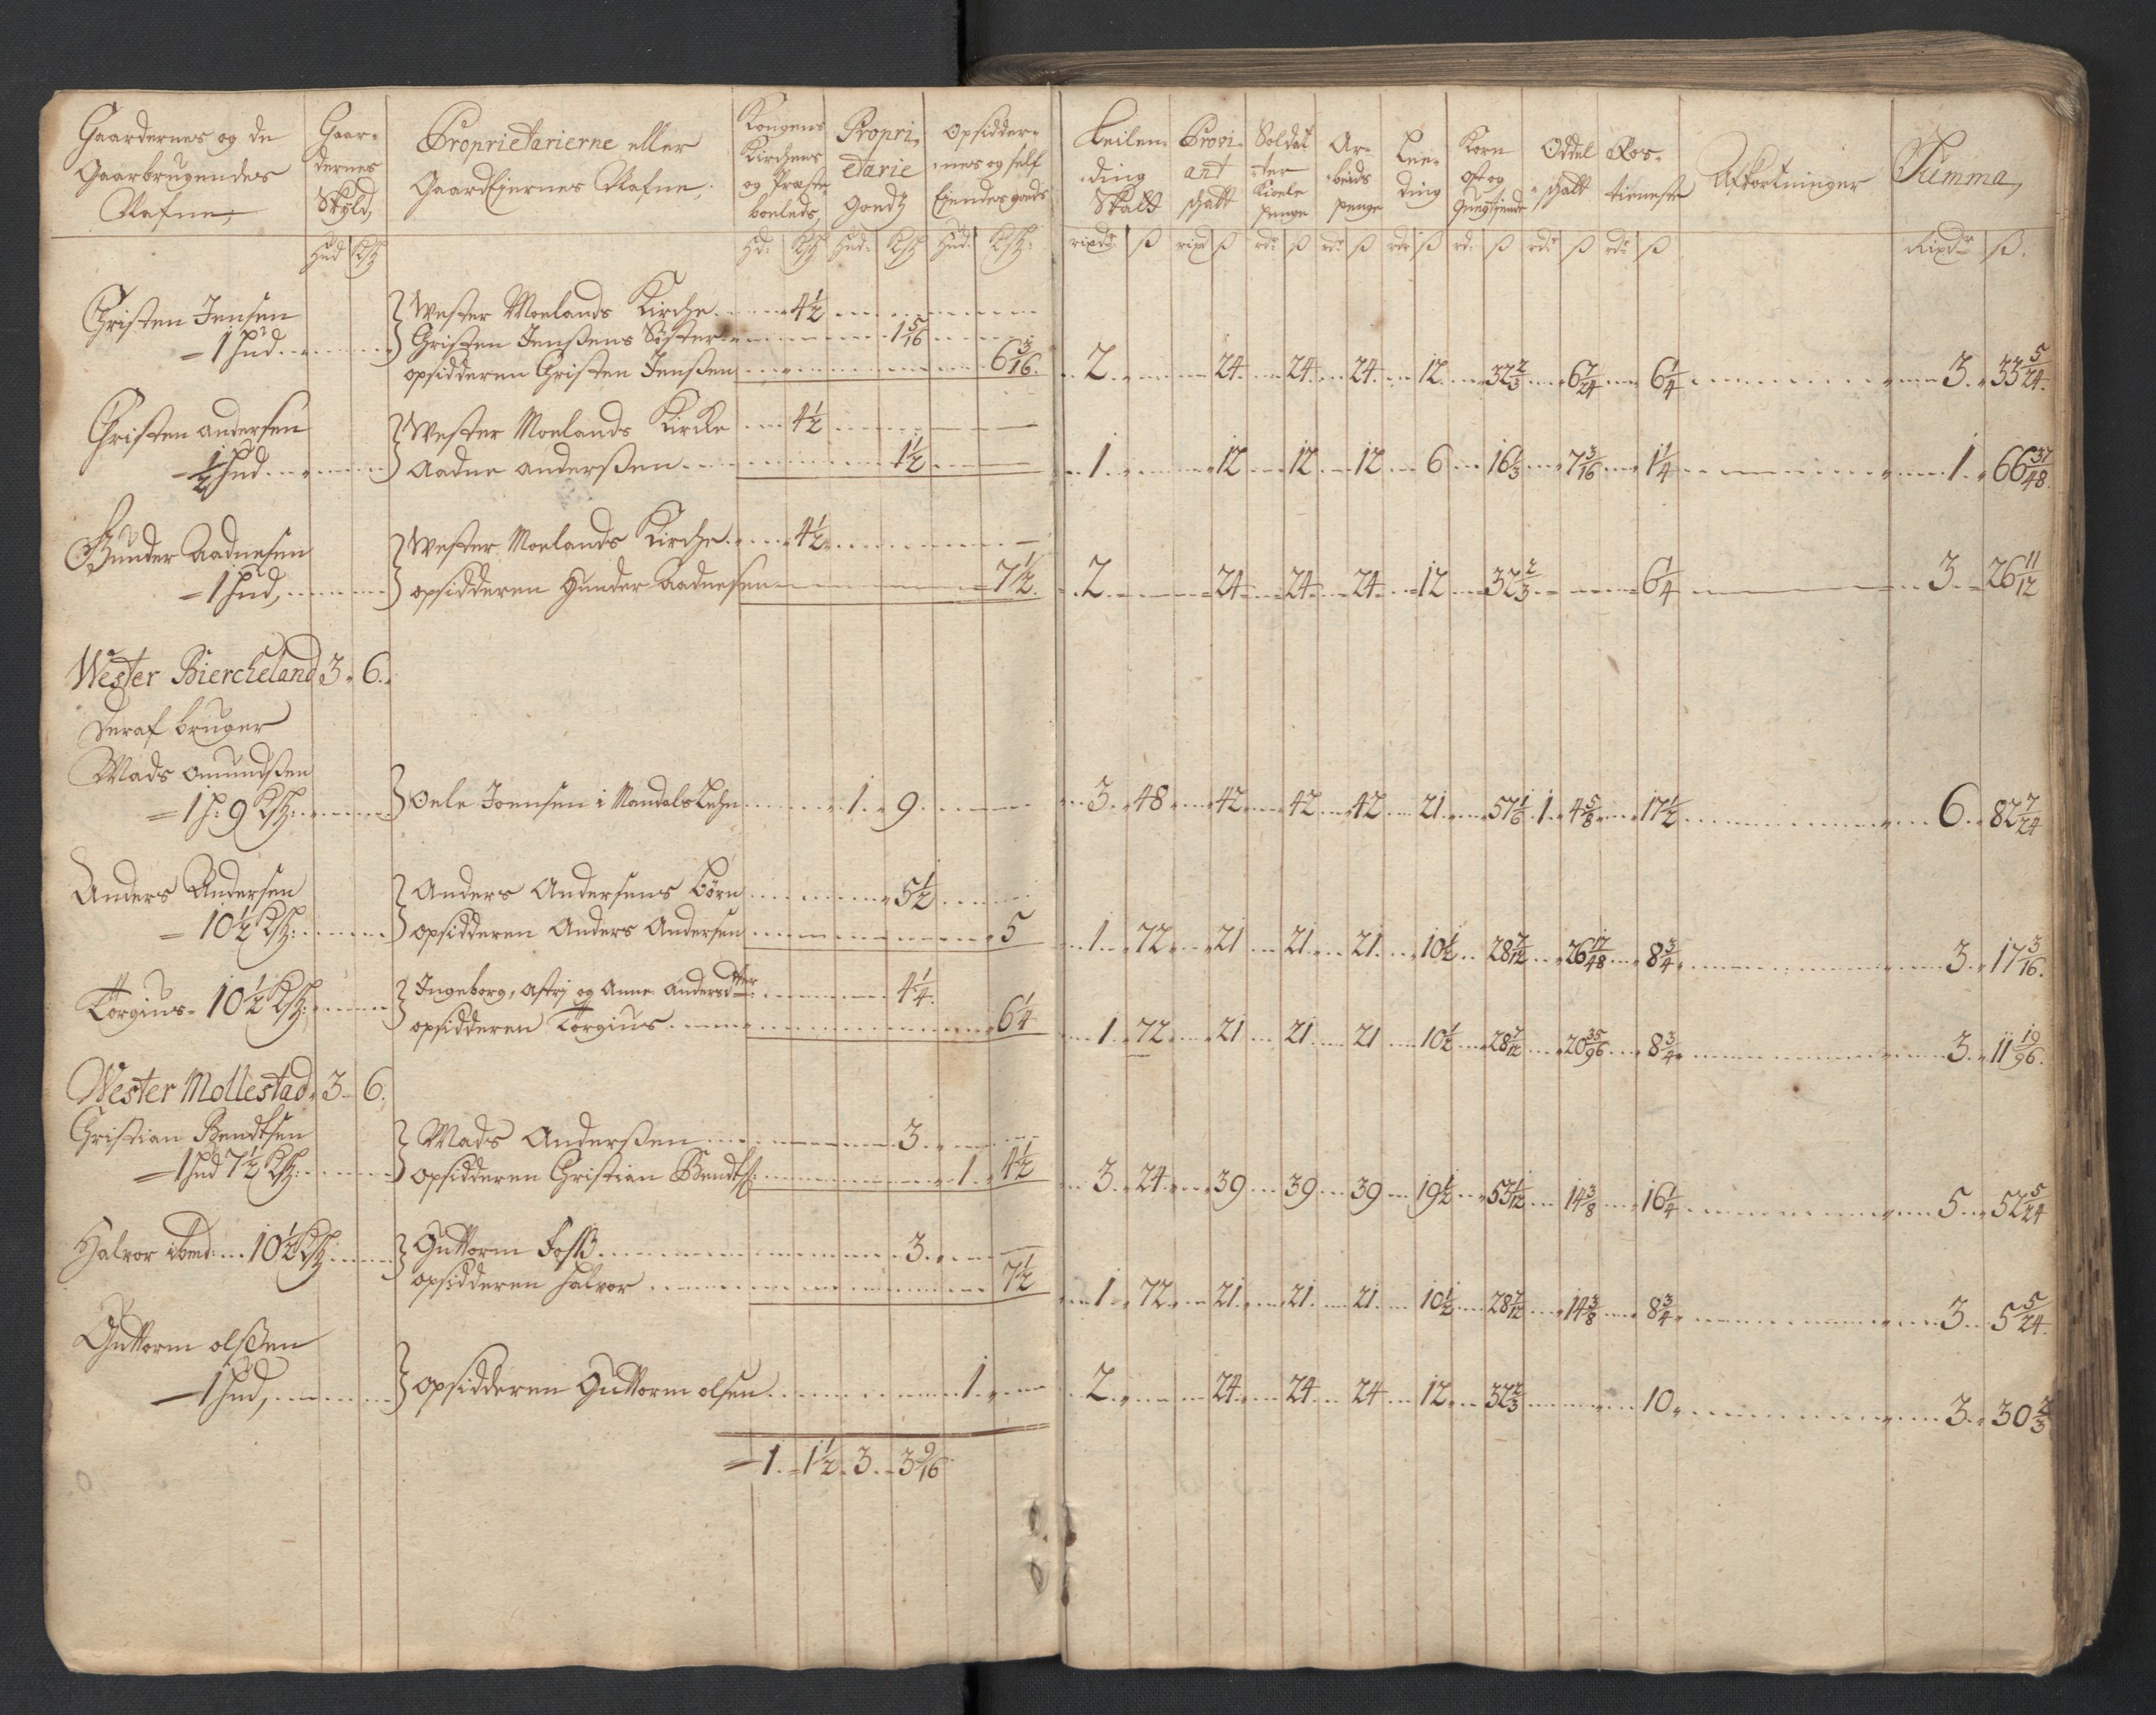 Gaardernes og de
Gaarbrugendes
Nafne,
Gaar-
dernes
Skyld,
Proprietarierne eller
Gaardejernes Nafne,
Kongens
Kirchens
og Præste
boeleds,
Propri-
etarie
Goedtz
Opsidder-
nes og self
Eiendes goeds
Leilen-
ding
Skatt
Provi-
ant
schatt
Soldat
ter
Kioele
penge
Ar-
beids
penge
Lee-
ding
Korn
ost og
Oddel
schatt
Ros-
tieneste
Afkortninger
Summa,
Hud
Hd:
Hud:
Hud:
rixdr ß
rixd ß
rdr ß
rdr ß
rdr ß
rd: ß
rdr ß
rdr ß
Rixdr ß.
Christen Jensen
= 1 Hud
Wester Moelands Kirche 4 1/2
Christen Jenßens Søster 1 5/16
opsidderen Christen Jenßen 6 3/16.
2. 24. 24. 24. 12. 32 2/3 6 7/24 6 1/4 3. 33 5/24.
Christen andersen
- 1/2 Hud
Wester Moelands Kirche 4 1/2
Aadne anderßen 1 1/2
1. 12 12 12 6 16 1/3 7 3/16 1 1/4 1. 66 37/48.
Gunder Aadnesen
= 1 Hud,
Wester Moelands Kirche 4 1/2
opsidderen Gunder Aadnesen 7 1/2.
2. 24 24 24 12 32 2/3 6 1/4 3. 26 11/12
Wester Biercheland 3. 6.
deraf bruger
Mads omundßen
= 1 h: 9
Oele Joensen i Mandals Lehn 1. 9.
3. 48 42 42 42 21 57 1/6 1. 4 5/8 17 1/2 6. 82 7/24
Anders Andersen
= 10 1/2
Anders Andersens børn 5 1/2
opsidderen Anders Andersen 5
1. 72 21 21 21 10 1/2 28 7/12 26 17/48 8 3/4 3. 17 3/16.
Torgius - 10 1/2
Ingeborg, Astrj og Anne Andersdtter 4 1/4.
opsidderen Torgius 6 1/4
1. 72 21 21 21 10 1/2 28 7/12 20 35/96 8 3/4 3. 11 19/96.
Wester Mollestad. 3. 6.
Christian Bendtsen
= 1 hud 7 1/2
Mads Anderßen 3.
opsidderen Christian Bendts: 1. 4 1/2
3. 24. 39 39 39 19 1/2 53 1/12 14 3/8 16 1/4 5. 52 5/24
Halvor ibmd: 10 1/2
Guttorm Foss 3.
opsidderen Halvor 7 1/2
1. 72. 21. 21. 21. 10 1/2 28 7/12 14 3/8 8 3/4 3. 5 5/24.
Guttorm olsen
= 1 Hud,
opsidderen Guttorm olsen 1.
2. 24. 24 24 12 32 2/3 10 3. 30 2/3
= 1. 1 1/2. 3. 3 9/16